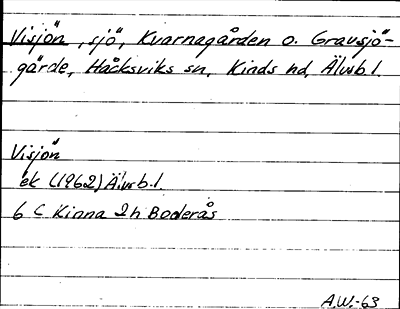 Visjön, sjö, Kvarnagården o. Gravsjö-
gärde, Håcksviks sn, Kinds hd, Älvsb.l.
Visjön
ek (1962) Älvsb.l.
6 C Kinna 2h Boderås
A.W.-63